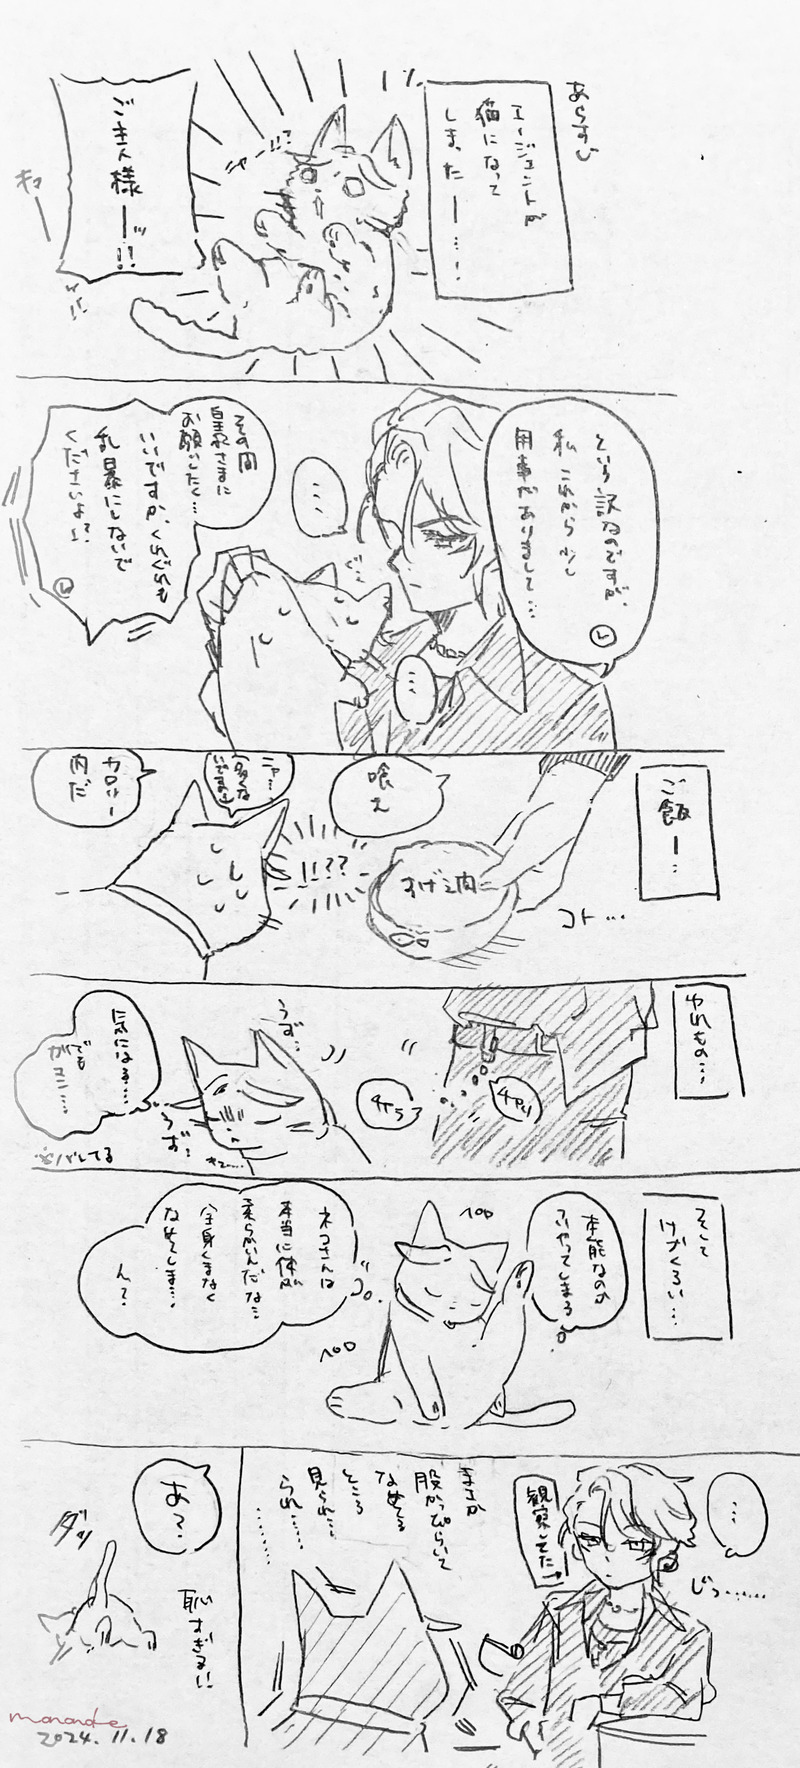 あらすじ
エージェントが
猫になって
しまったー…!
ニャーッ!?
ご主人様ーッ!!
という訳なのですが、
私これから少し
用事がありまして…
レ
…
その間
皇帝さまに
お願いしたく…
いいですか、くれぐれも
乱暴にしないで
くださいよ!?
レ
…
ご飯ー…
コト…
すげえ肉
喰え
!!??
ニャ…
多くな
いですか
カロリー
肉だ
われもの…
チャリ
チラ
うず…
うず…
気になる…
でも
ガマン…
※バレてる
そして
けづくろい…
本能なのか
ついやってしまうな
ペロ
ペロ
ネコさんは
本当に体が
柔らかいんだな…
全身くまなく
なめてしま…
ん?
…
じっ……
観察してた→
まさか
股かっぴらいて
なめてる
ところ
見られ…
られ……
あっ
ダッ
恥ずすぎる!!
manande
2024.11.18